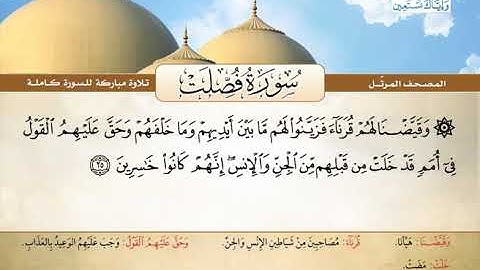 وَإِيَّاكَ نَسْتَعِينُ
المصحف المرتّل
سُورَةُ فُصِّلَتْ
تلاوة مباركة للسورة كاملة
۞ وَقَيَّضْنَا لَهُمْ قُرَنَآءَ فَزَيَّنُوا۟ لَهُم مَّا بَيْنَ أَيْدِيهِمْ وَمَا خَلْفَهُمْ وَحَقَّ عَلَيْهِمُ ٱلْقَوْلُ
فِىٓ أُمَمٍ قَدْ خَلَتْ مِن قَبْلِهِم مِّنَ ٱلْجِنِّ وَٱلْإِنسِ ۖ إِنَّهُمْ كَانُوا۟ خَٰسِرِينَ ٢٥
وَقَيَّضْنَا: هَيَّأْنَا. قُرَنَاءَ: مُصَاحِبِينَ مِنْ شَيَاطِينِ الإِنْسِ وَالْجِنِّ. وَحَقَّ عَلَيْهِمُ الْقَوْلُ: وَجَبَ عَلَيْهِمُ الْوَعِيدُ بِالْعَذَابِ.
خَلَتْ: مَضَتْ.